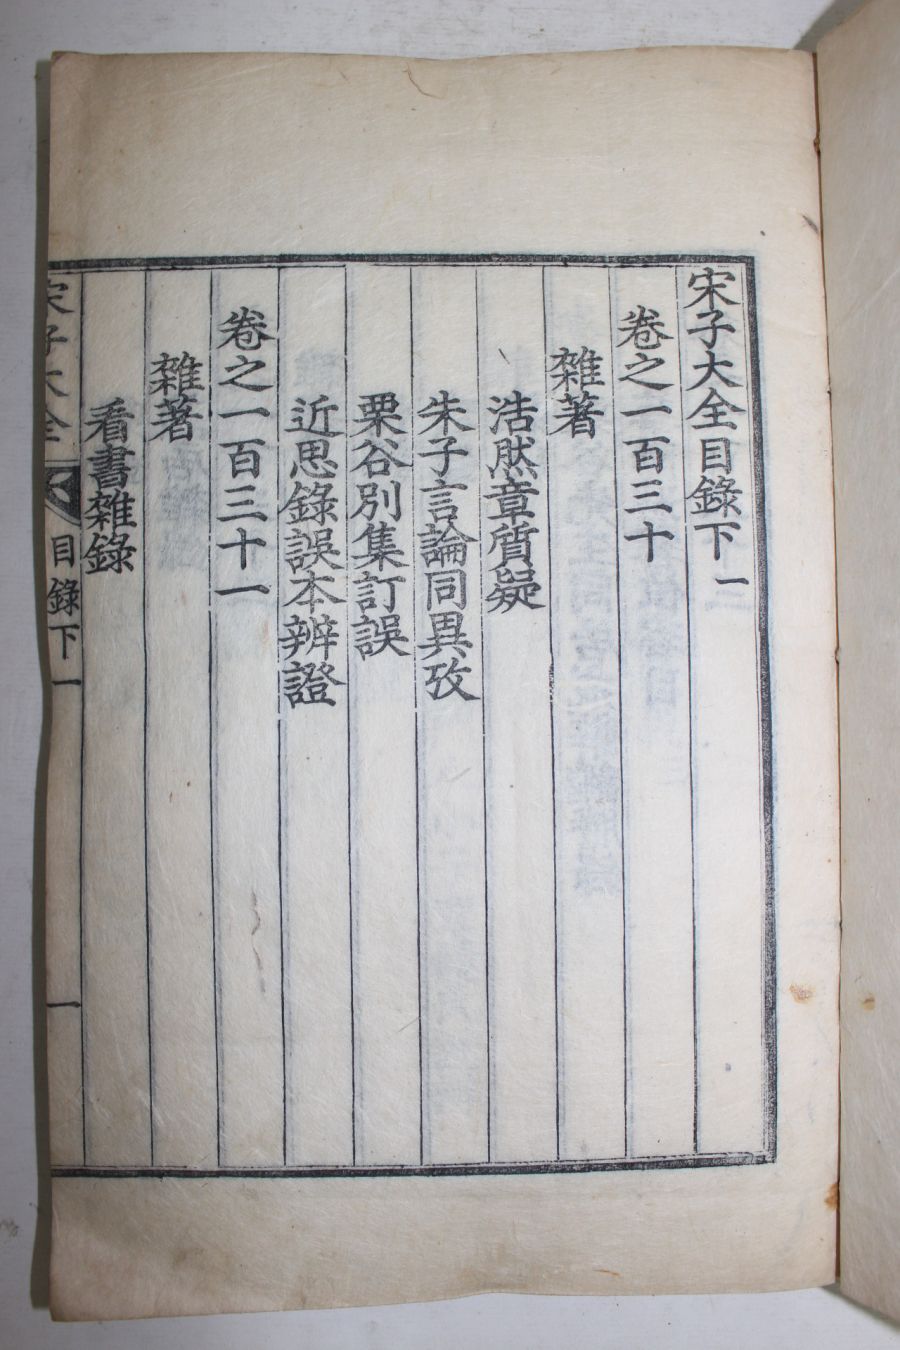 宋子大全目錄下一
卷之一百三十
雜著
浩然章質疑
朱子言論同異攷
栗谷別集訂誤
近思錄誤本辨證
卷之一百三十一
雜著
看書雜錄
宋子大全
目錄下一
一